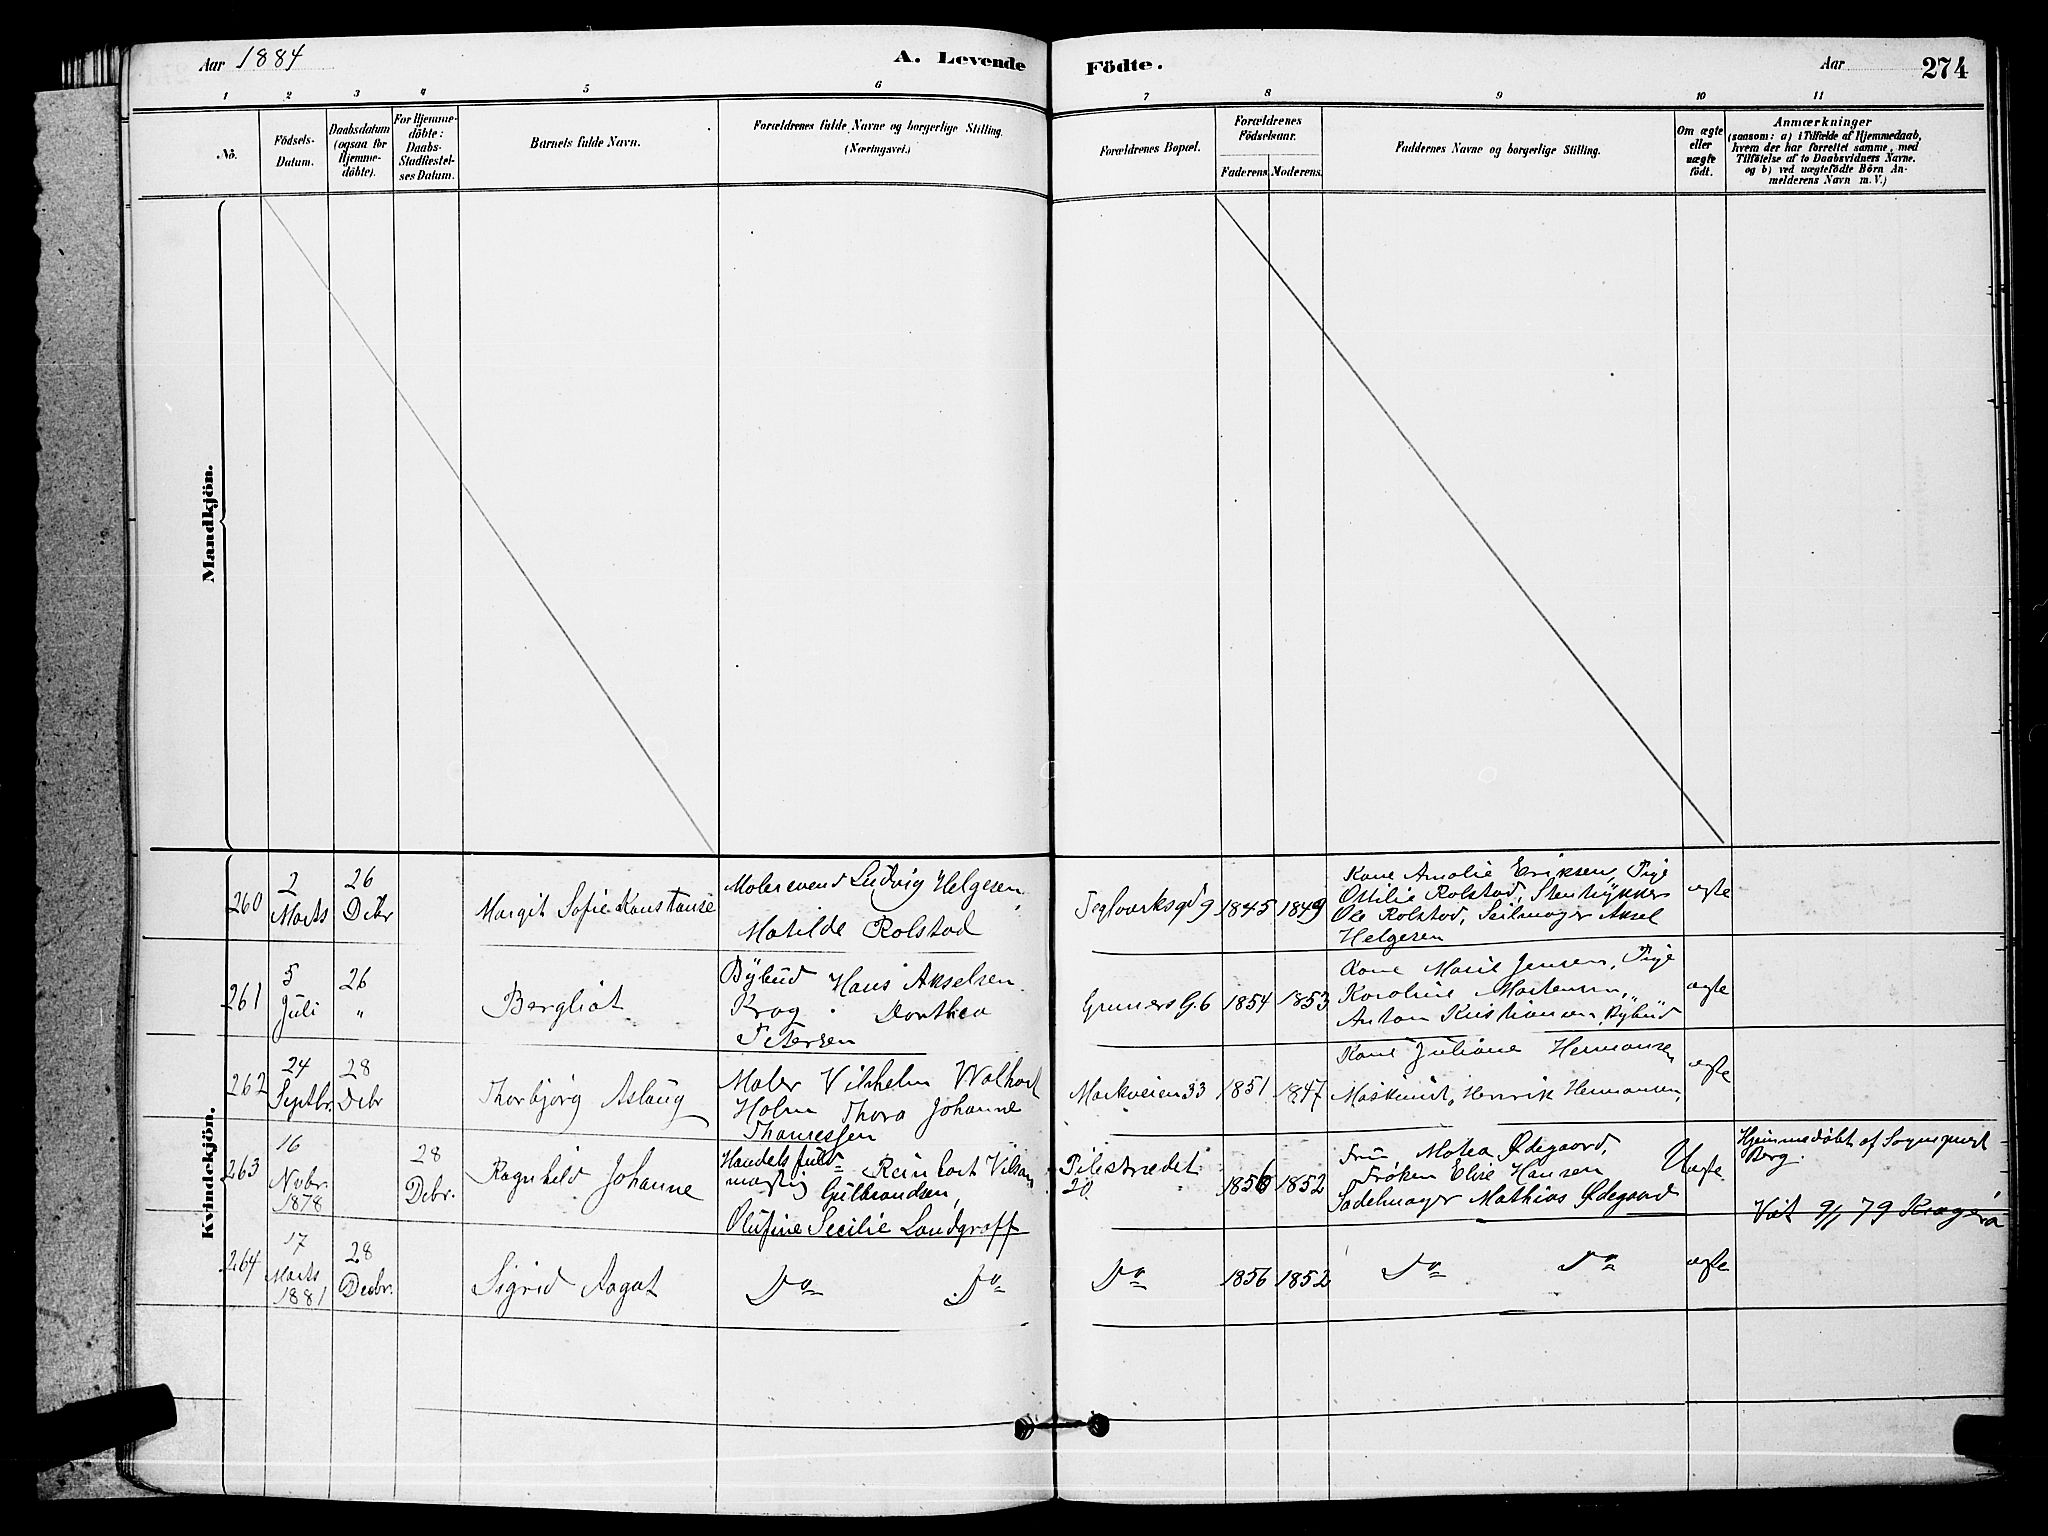 Aar 1884
A. Levende
Födte.
Aar
274
1 2 3 4 5 6 7 8 9 10 11
Nö.
Födsels-
Datum.
Daabsdatum
(ogsaa for
Hjemme-
döbte).
For Hjemme-
döbte:
Daabs-
Stadfæstel-
ses Datum.
Barnets fulde Navn.
Forældrenes fulde Navne og borgerlige Stilling.
(Næringsvei.)
Forældrenes Bopæl.
Forældrenes
Födselsaar.
Faderens. Moderens.
Faddernes Navne og borgerlige Stilling.
Om ægte
eller
uægte
födt.
Anmærkninger
(saasom: a) i Tilfælde af Hjemmedaab,
hvem der har forrettet samme, med
Tilföielse af to Daabsvidners Navne.
og b) ved uægtefödte Börn An-
melderens Navn m. V.)
Mandkjön.
Kvindekjön.
260
2
Marts
26
Debr
Margit Sofie Konstanse
Malersvend Ludvig Helgesen,
Matilde Rolstad
Teglværksgd 9
1845
1849
Kone Amalie Eriksen, Pige
Ottilie Rolstad, Stentrykker
Ole Rolstad, Seilmager Aksel
Helgesen
ægte
261
5
Juli
26
"
Bergliot
Bybud Hans Akselsen
Krog. Dorthea
Petersen
Gruners G. 6
1854
1853
Kone Marie Jensen, Pige
Karoline Mortensen,
Anton Kristiansen, Bybud
ægte
262
24
Septbr.
28
Debr
Thorbjörg Aslaug
Maler Vilhelm Walhart
Holm Thora Johanne
Markveien 33
1851
1847
Kone Juliane Hermansen
Maskinist, Henrik Hermansen,
ægte
263
16
Nvbr.
1878
28
Debr.
Ragnhild Johanne
Handelsfuld-
mægtig Reinhart Vilson
Gulbrandsen,
Olufine Secilie Landgraff
Pilestrædet
20
1856
1852
Fru Matea Ødegaard,
Frøken Elise Hansen
Sadelmager Mathias Ødegaard
Uægte.
Hjemmedöbt af Sogneprest
Berg.
9/1 79 Kragerø
264
17
Marts
1881
28
Decbr.
Sigrid Aagot
Do Do
Do
1856
1852
Do Do
ægte